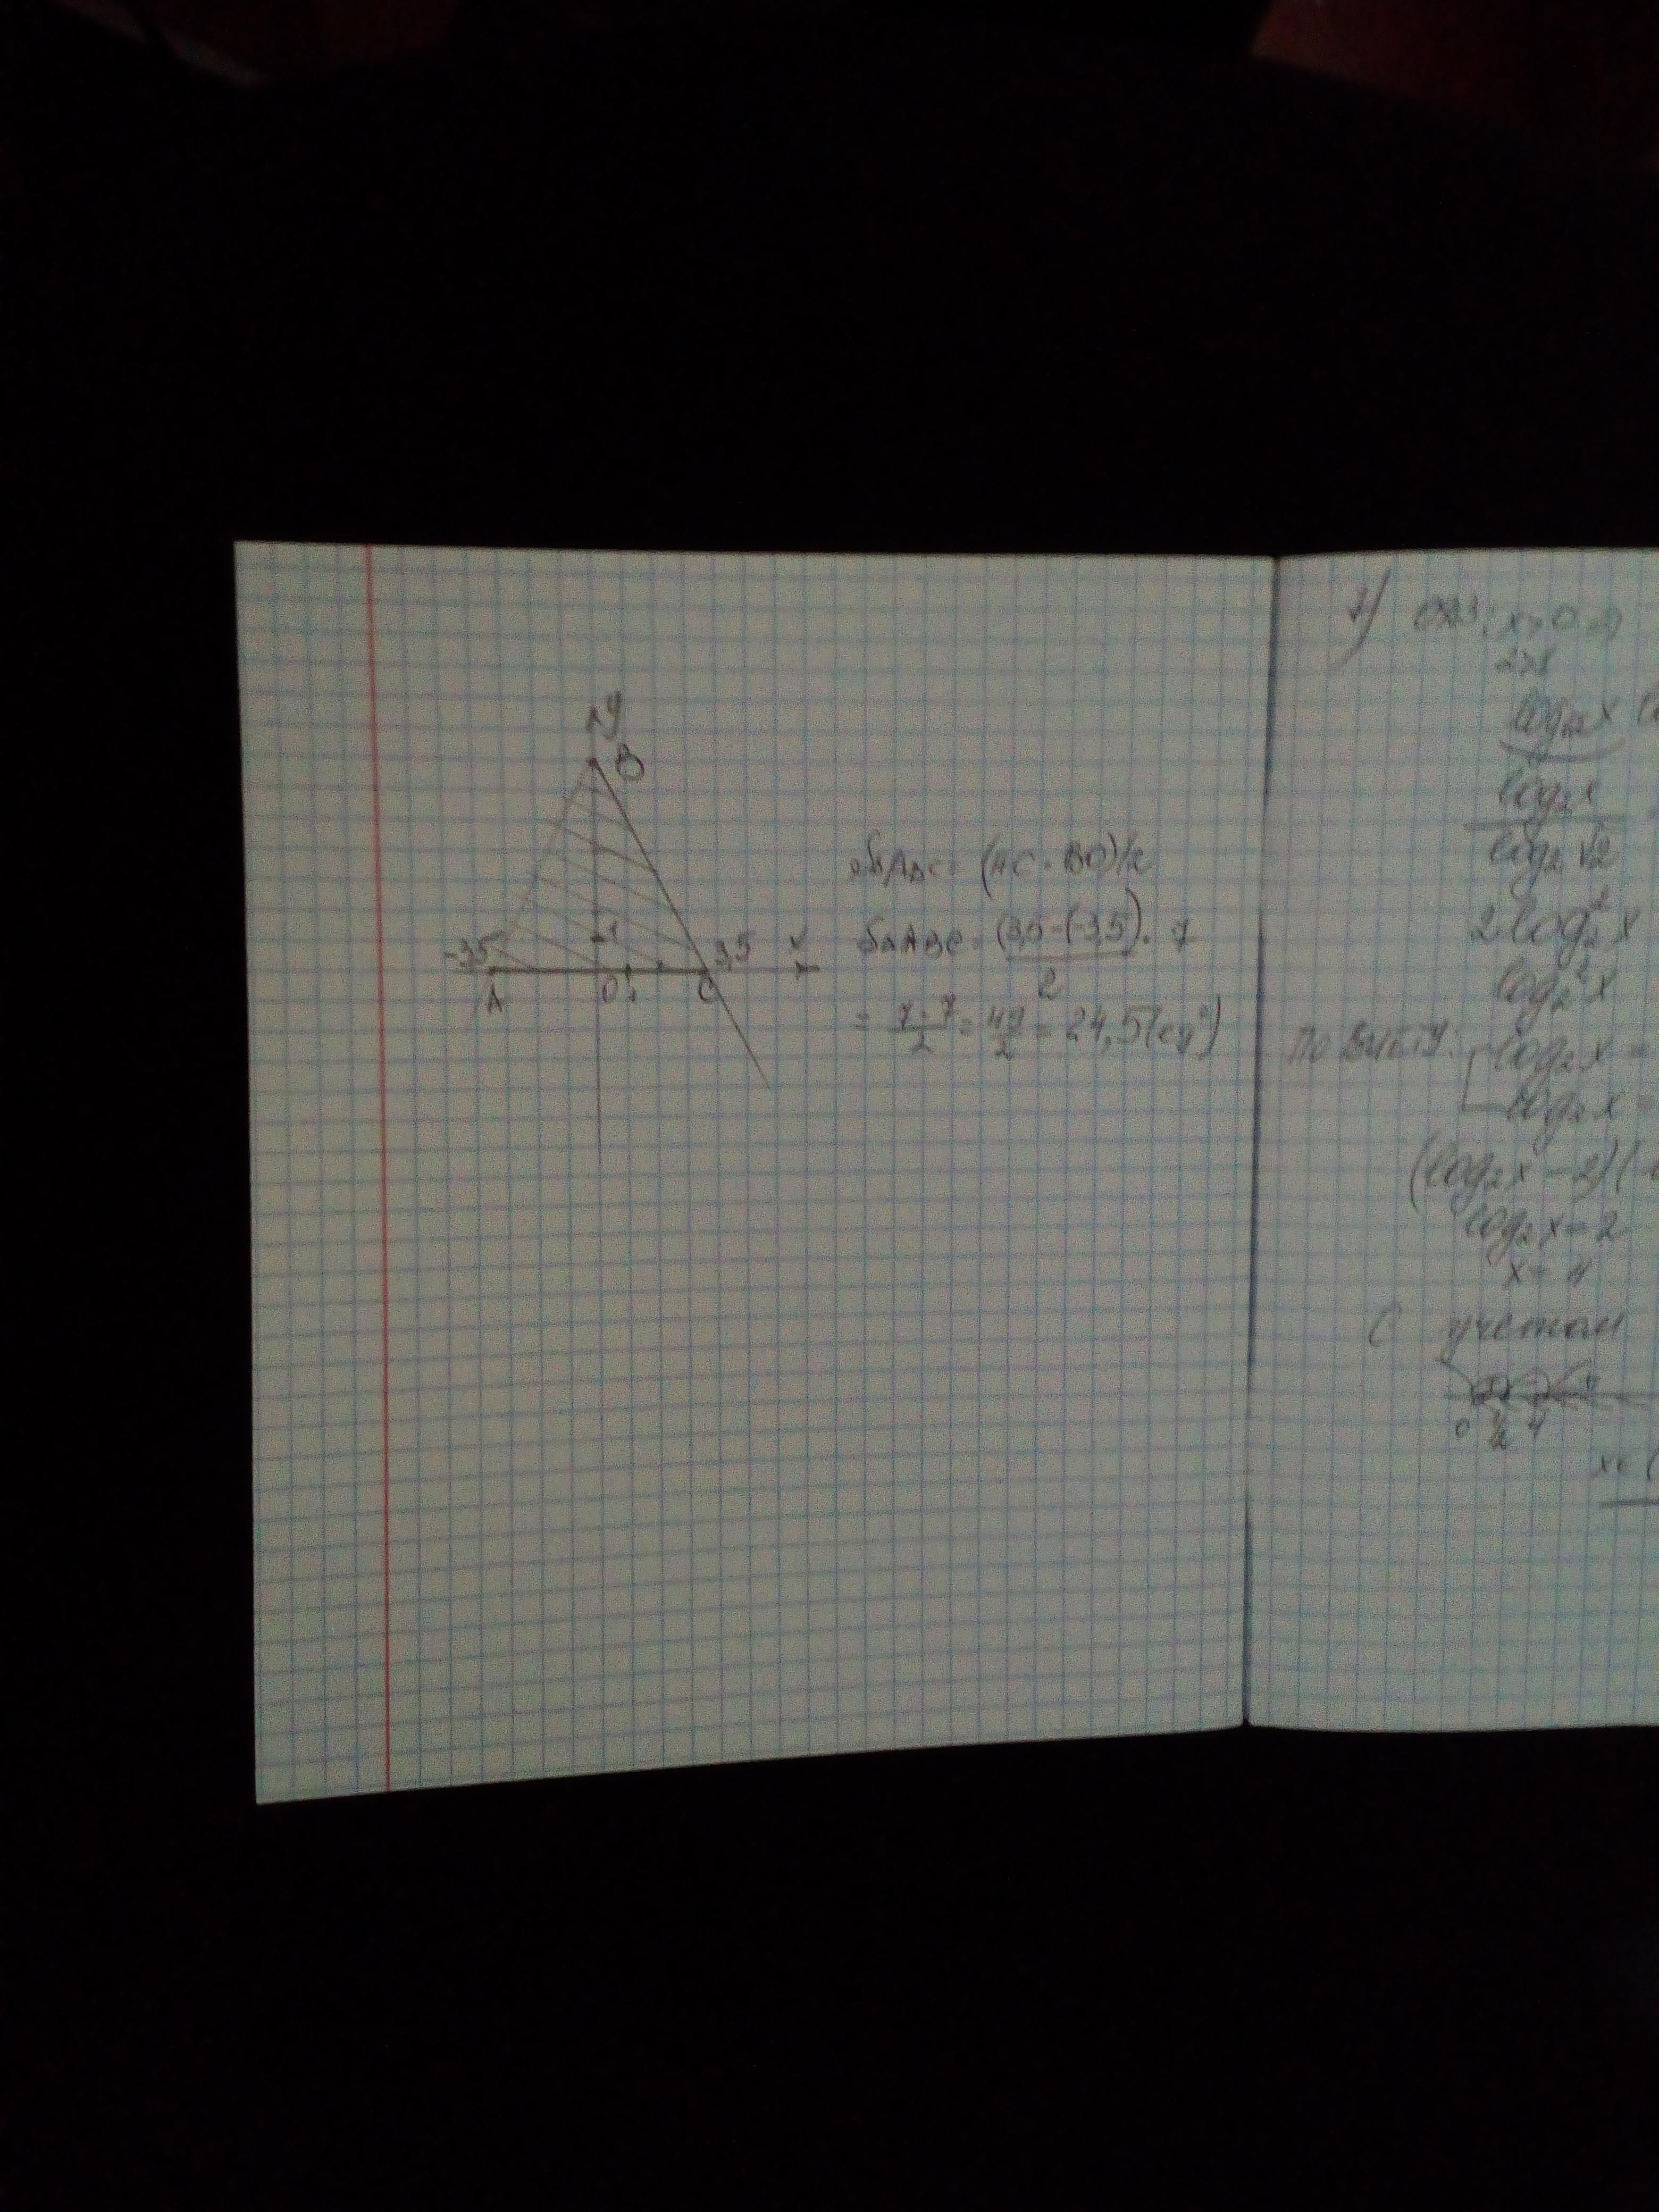 y
B
-3,5 1 3,5 x
A 0 1 C
S△ABC = (AC · BO)/2
S△ABC = (3,5-(-3,5)) · 7
2
= 7·7/2 = 49/2 = 24,5 (ед²)
7) ОДЗ: x > 0
log√2 x
log₂x
log₂√2
2log₂²x
log₂²x
По Виету: log₂x =
log₂x =
(log₂x - 2)(
log₂x = 2
x = 4
С учетом
0 1/2 4
x ∈ (